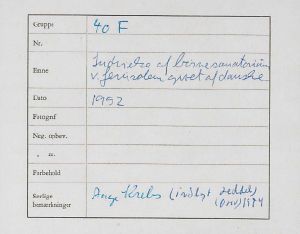 Gruppe 40 F
Nr.
Emne Indvielse af børnesanatorium
v. Jerusalem givet af danske
Dato 1952
Fotograf
Neg. opbev.
" nr.
Forbehold
Særlige
bemærkninger Aage Krebs (indlagt seddel)